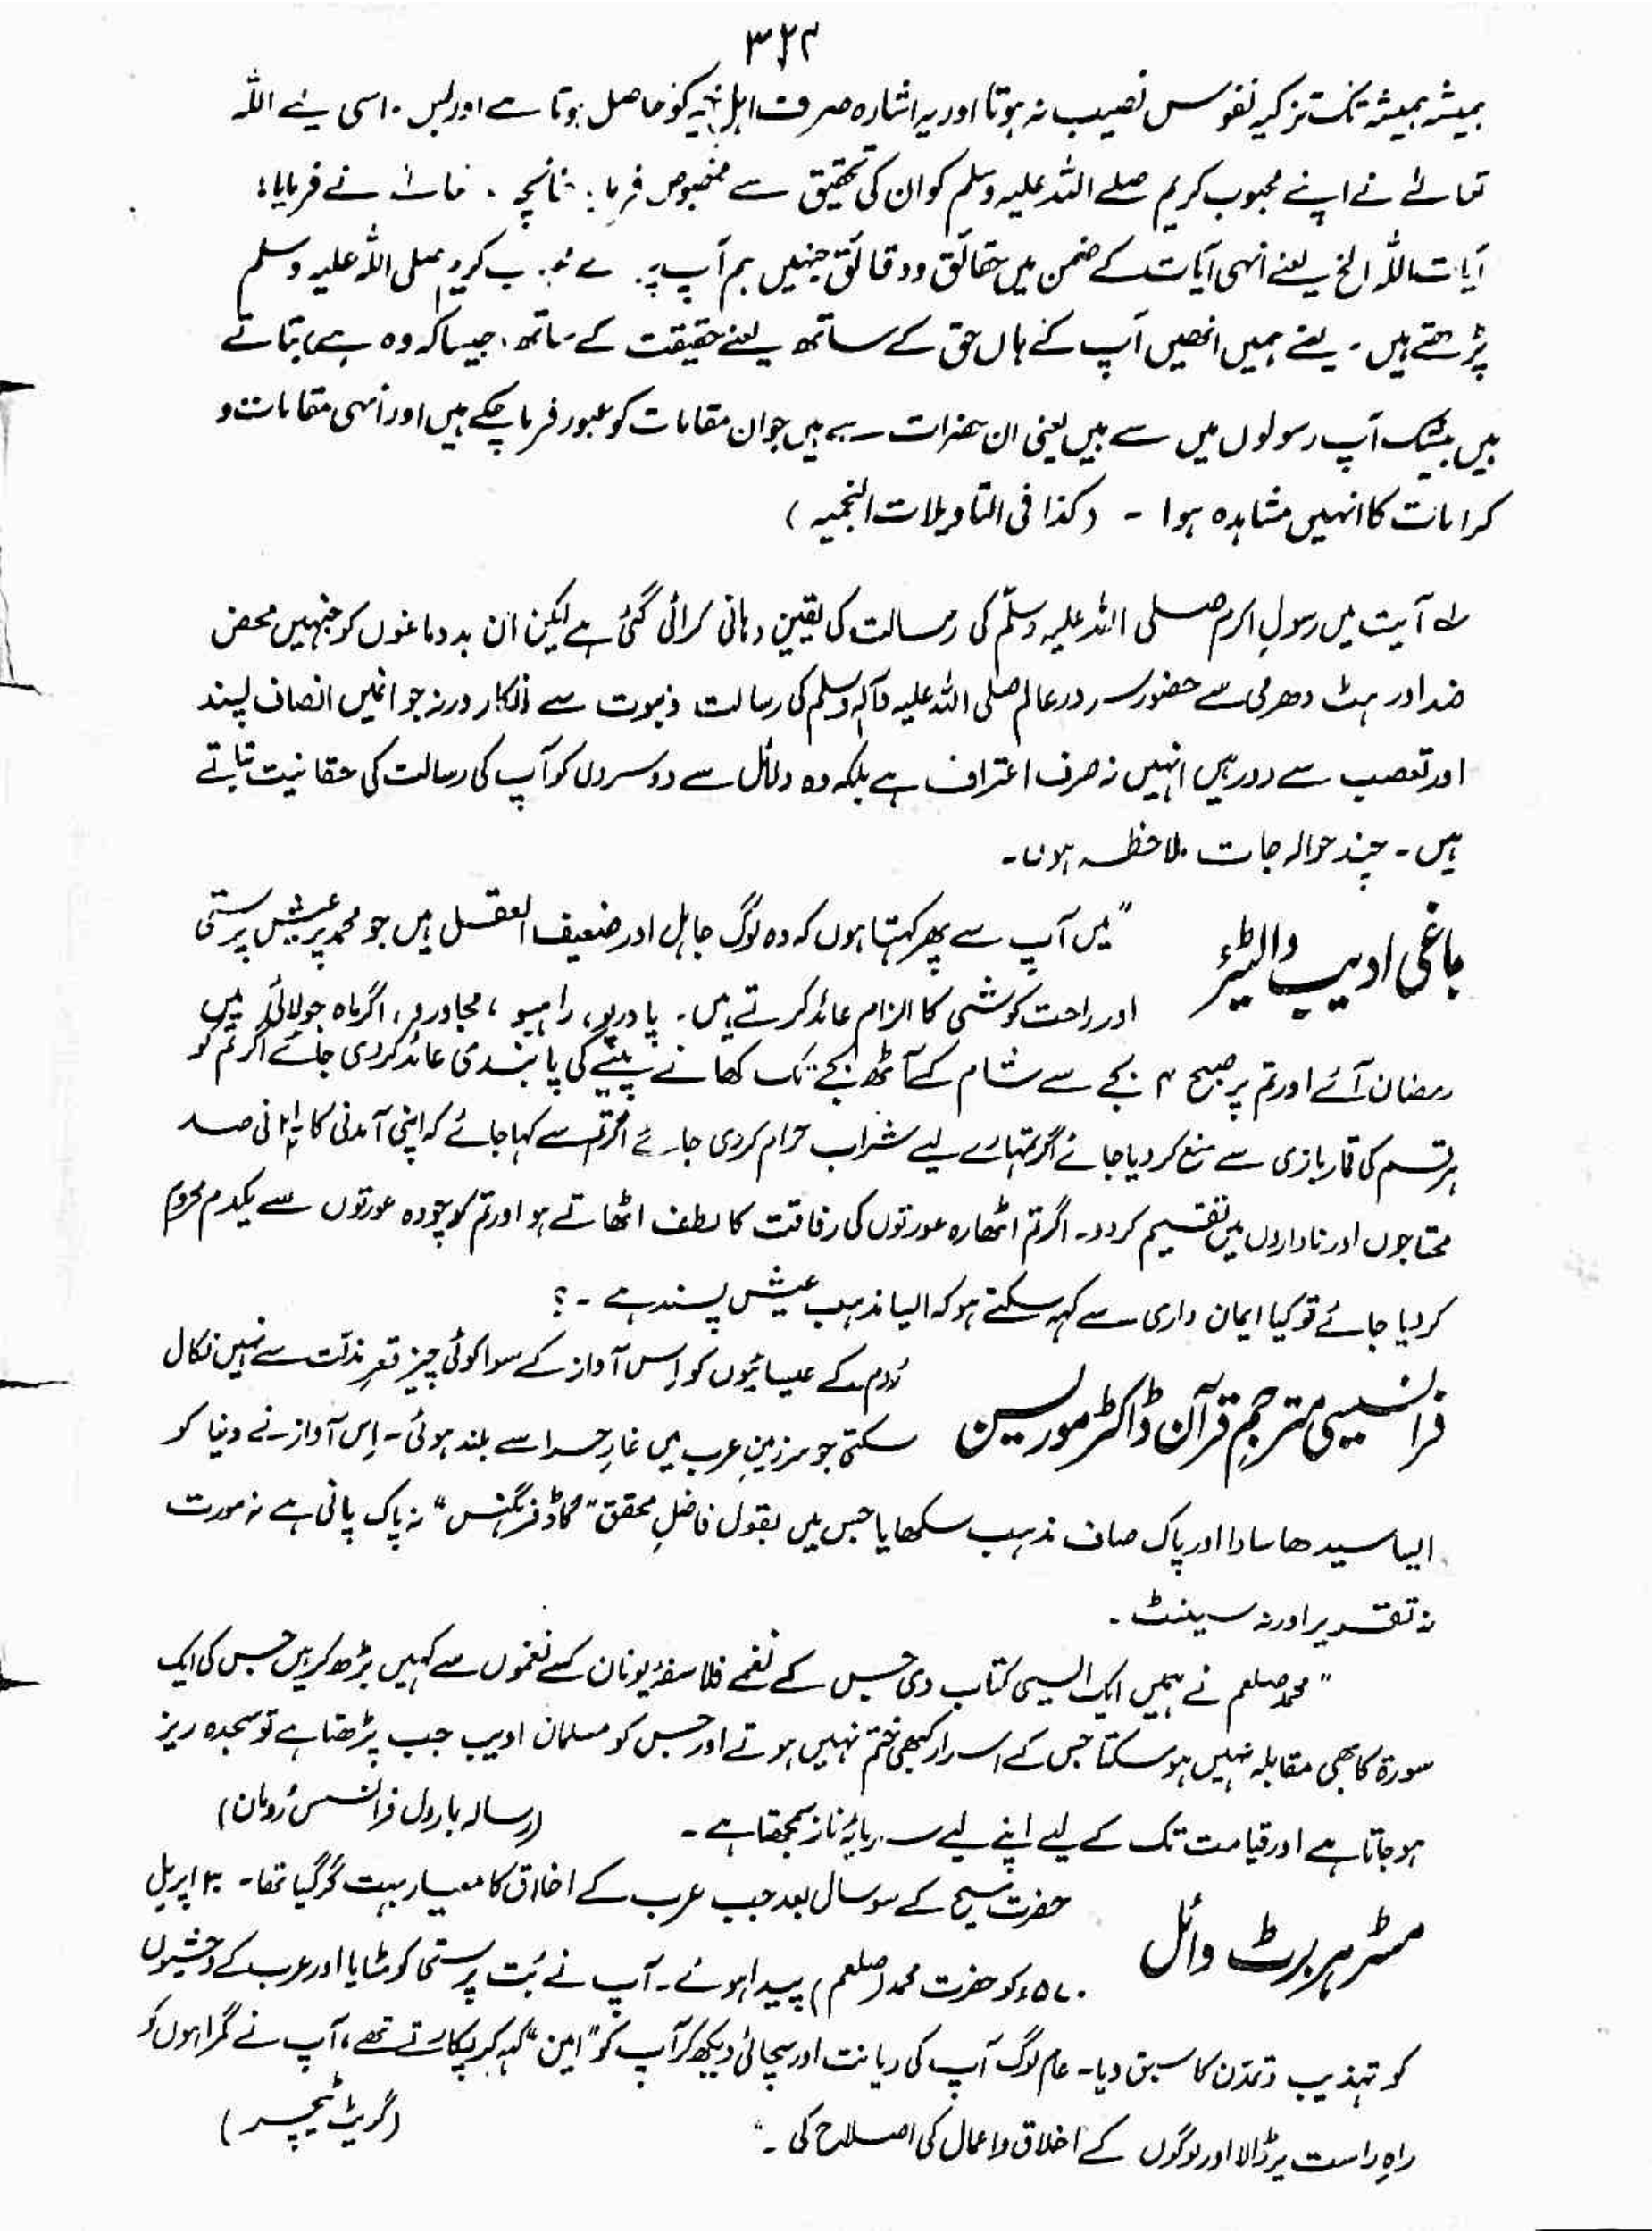 ۳۲۲
ہمیشہ ہمیشہ تک تزکیہ نفوس نصیب نہ ہوتا اور یہ اشارہ صرف اہل کو حاصل ہوتا ہے اور بس ۔ اسی لئے اللہ
تعالےٰ نے اپنے محبوب کریم صلے اللہ علیہ وسلم کو ان کی تحقیق سے مخصوص فرمایا نے فرمایا :
آیات اللہ الخ یعنے انہی آیات کے ضمن میں حقائق و دقائق جنہیں ہم آپ پر صلی اللہ علیہ وسلم
پڑھتے ہیں ۔ یعنے ہمیں انھیں آپ کے ہاں حق کے ساتھ یعنے حقیقت کے ساتھ ، جیسا کہ وہ ہے ، بتاتے
ہیں بیشک آپ رسولوں میں سے ہیں یعنی ان حضرات سے ہیں جو ان مقامات کو عبور فرما چکے ہیں اور انہی مقامات و
کرامات کا انہیں مشاہدہ ہوا ۔ (کذا فی التاویلات النجمیہ)
لہ آیت میں رسول اکرم صلی اللہ علیہ وسلّم کی رسالت کی یقین دہانی کرائی گئی ہے لیکن ان بد دماغوں کو جنہیں محض
ضد اور ہٹ دھرمی سے حضور سرور عالم صلی اللہ علیہ وآلہ وسلم کی رسالت و نبوت سے انکار ورنہ جو انمیں انصاف پسند
اور تعصب سے دور ہیں انہیں نہ صرف اعتراف ہے بلکہ وہ دلائل سے دوسروں کو آپ کی رسالت کی حقانیت بتاتے
ہیں ۔ چند حوالہ جات ملاحظہ ہوں ۔
باغی ادیب والٹیئر
" میں آپ سے پھر کہتا ہوں کہ وہ لوگ جاہل اور ضعیف العقل ہیں جو محمد پر عیش پرستی
اور راحت کوشی کا الزام عائد کرتے ہیں ۔ پادریو ، راہبو ، مجاورو ، اگر ماہ جولائی میں
رمضان آئے اور تم پر صبح ۴ بجے سے شام کے آٹھ بجے تک کھانے پینے کی پابندی عائد کردی جائے اگر تم کو
ہر قسم کی قمار بازی سے منع کر دیا جائے اگر تمہارے لیے شراب حرام کردی جائے اگر تم سے کہا جائے کہ اپنی آمدنی کا فی صد
محتاجوں اور ناداروں میں تقسیم کردو ۔ اگر تم اٹھارہ عورتوں کی رفاقت کا لطف اٹھاتے ہو اور تم کو چودہ عورتوں سے یکدم محروم
کردیا جائے تو کیا ایمان داری سے کہہ سکتے ہو کہ ایسا مذہب عیش پسند ہے ۔ ؟
فرانسیسی مترجم قرآن ڈاکٹر موریسین
رُوم کے عیسائیوں کو اِس آواز کے سوا کوئی چیز قعرِ مذلّت سے نہیں نکال
سکتی جو سرزمینِ عرب میں غارِ حرا سے بلند ہوئی ۔ اِس آواز نے دنیا کو
ایسا سیدھا سادا اور پاک صاف مذہب سکھایا جس میں بقول فاضل محقق "گاڈ فرہگنس" نہ پاک پانی ہے نہ مورت
نہ تقدیر اور نہ سینٹ ۔
" محمد صلعم نے ہمیں ایک ایسی کتاب دی جس کے نغمے فلاسفۂ یونان کے نغموں سے کہیں بڑھ کر ہیں جس کی ایک
سورۃ کا بھی مقابلہ نہیں ہو سکتا جس کے اسرار کبھی ختم نہیں ہوتے اور جس کو مسلمان ادیب جب پڑھتا ہے تو سجدہ ریز
ہو جاتا ہے اور قیامت تک کے لیے اپنے لیے سرمایۂ ناز سمجھتا ہے ۔ (رسالہ بارول فرانسس رُومان)
مسٹر ہربرٹ وائل
حضرت مسیح کے سو سال بعد جب عرب کے اخلاق کا معیار بہت گر گیا تھا ۔ ۳۰ اپریل
۵۷۰ء کو حضرت محمد (صلعم) پیدا ہوئے ۔ آپ نے بُت پرستی کو مٹایا اور عرب کے وحشیوں
کو تہذیب و تمدّن کا سبق دیا ۔ عام لوگ آپ کی دیانت اور سچائی دیکھ کر آپ کو "امین" کہہ کر پکارتے تھے ، آپ نے گمراہوں کو
راہِ راست پر ڈالا اور لوگوں کے اخلاق و اعمال کی اصلاح کی ۔" (گریٹ ٹیچر)